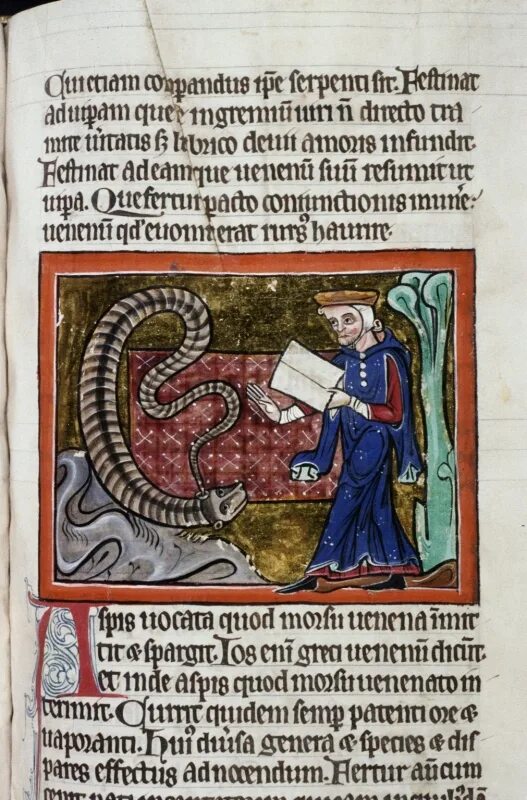 Qui etiam cōpandus ip̄e serpenti sit. Festinat
ad uip̄am que ingreniū uiri n̄ directo tra
mite ūitatis sꝫ lubrico deuii amoris infundit.
Festinat ad eamque uenenū suū resumit ut
uip̄a. Que fertur pacto coniunctionis munere
uenenū qd' euomuerat rurs' haurire.
Aspis uocata quod morsu uenena īmit
tit & spargit. Ios enī greci uenenū dicūt.
et inde aspis quod morsu uenenato in
terimit. Currit quidem semp patenti ore &
uaporanti. Hui' diūsa genera & species & dis
pares effectus ad nocendum. Fertur aūt cum